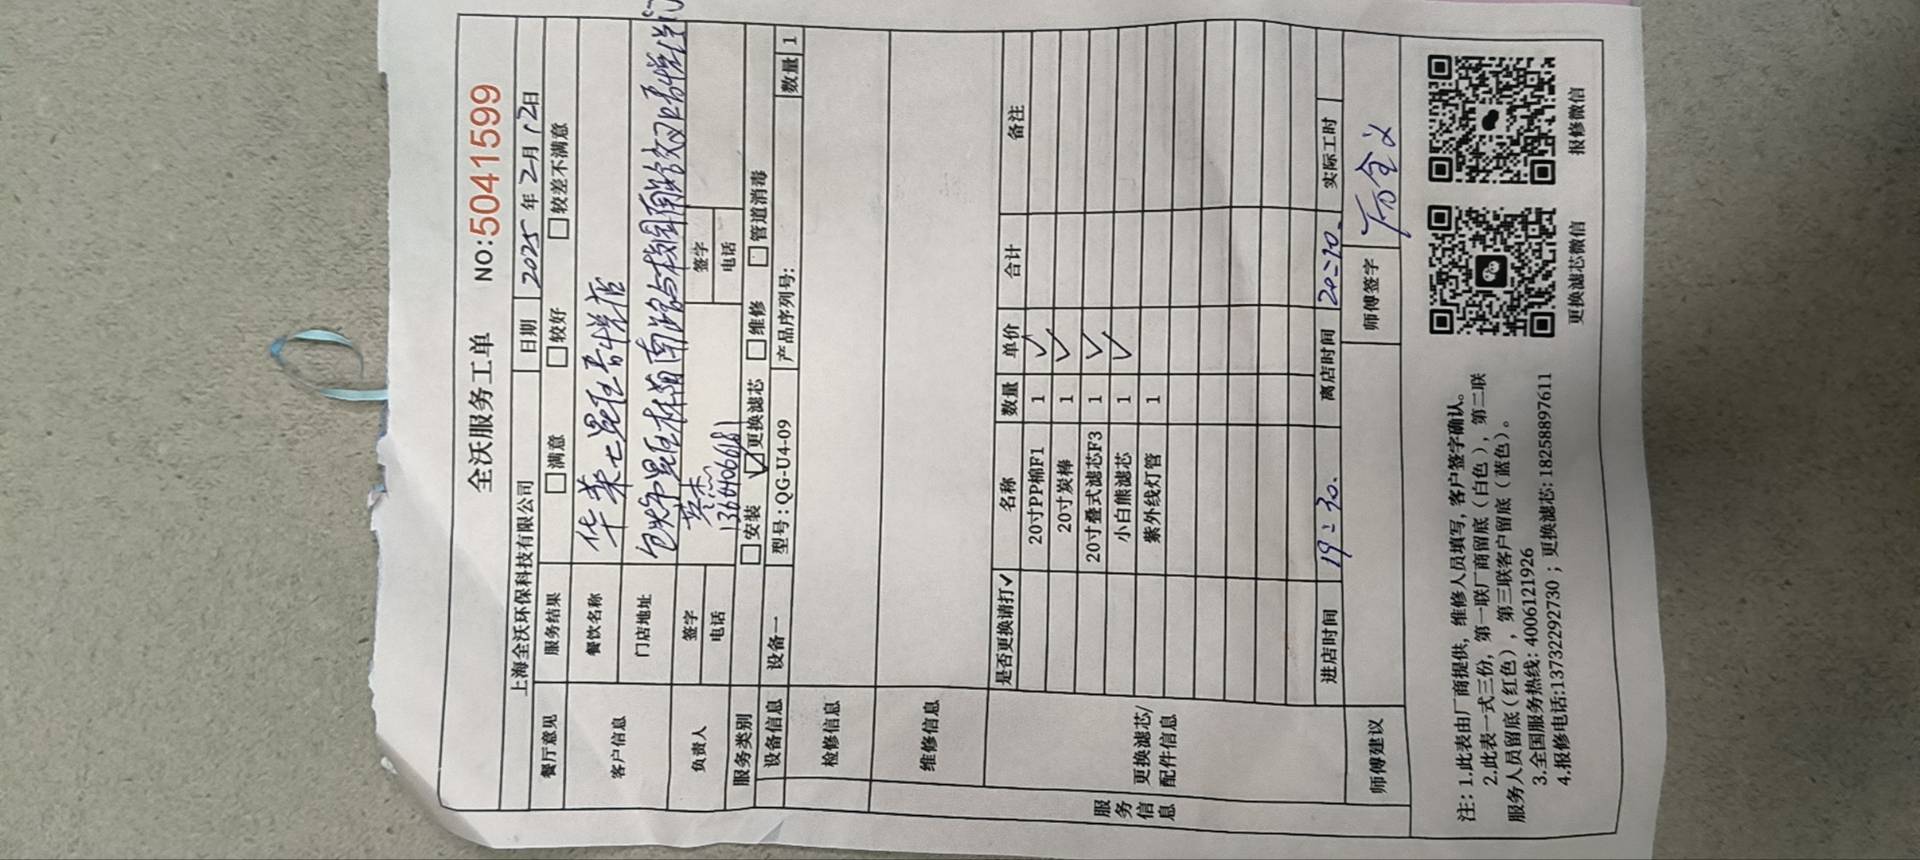 全沃服务工单 NO:5041599
上海全沃环保科技有限公司 日期 2025年2月12日
餐厅意见 服务结果 □满意 □较好 □较差不满意
客户信息 餐饮名称 华莱士昆玉
门店地址
负责人 签字 签字
电话 电话
服务类别 □安装 ☑更换滤芯 □维修 □管道消毒
设备信息 设备一 型号:QG-U4-09 产品序列号: 数量 1
检修信息
维修信息
服务信息
更换滤芯/配件信息
是否更换请打✓ 名称 数量 单价 合计 备注
20寸PP棉F1 1 ✓
20寸炭棒 1 ✓
20寸叠式滤芯F3 1 ✓
小白熊滤芯 1 ✓
紫外线灯管 1
进店时间 19:30. 离店时间 20:10. 实际工时
师傅建议 师傅签字
注: 1.此表由厂商提供, 维修人员填写, 客户签字确认。
2.此表一式三份, 第一联厂商留底(白色), 第二联
服务人员留底(红色), 第三联客户留底(蓝色)。
3.全国服务热线: 4006121926
4.报修电话:13732292730 ; 更换滤芯: 18258897611
更换滤芯微信 报修微信